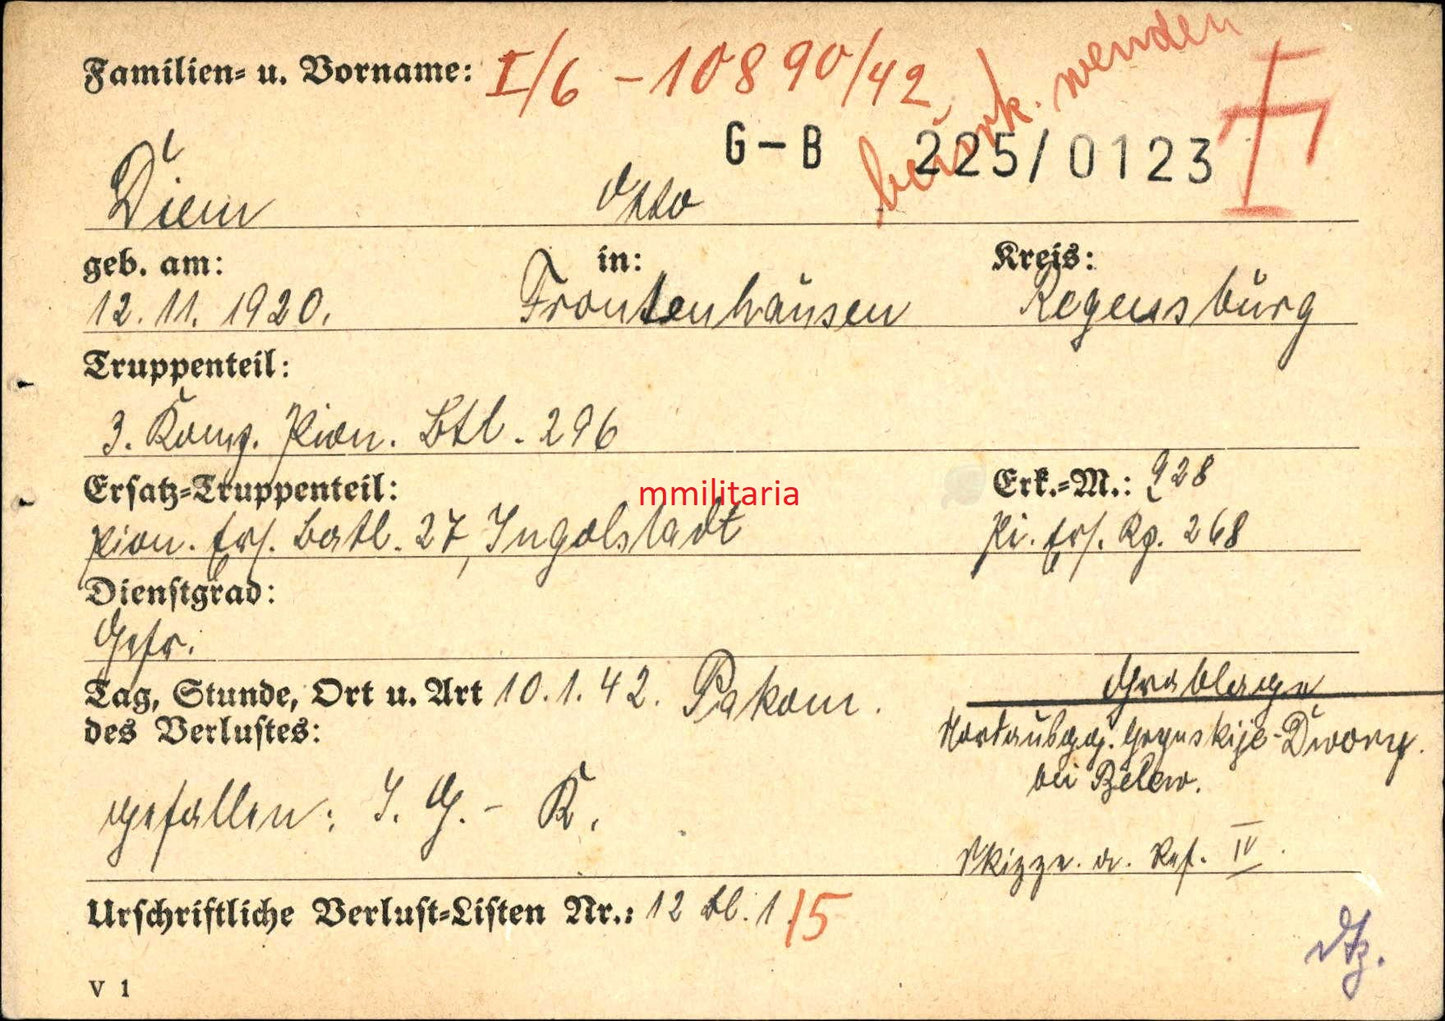 Familien= u. Vorname: I/6 – 10890/42
beurk. wenden
G–B 225/0123
Diem Otto
geb. am: in: Kreis:
12. 11. 1920. Frontenhausen Regensburg
Truppenteil:
3. Komp. Pion. Btl. 296
Ersatz=Truppenteil: Erk.=M.: 928
mmilitaria
Pion. Ers. Batl. 27, Ingolstadt Pi. Ers. Kp. 268
Dienstgrad:
Gefr.
Tag, Stunde, Ort u. Art 10. 1. 42. Pakom. Grablage
des Verlustes: Nordausgg. -Dwory.
bei Belew.
gefallen: I. G. – K.
Skizze. a. Ref. IV.
Urschriftliche Verlust=Listen Nr.: 12 Bl. 1 /5
V 1